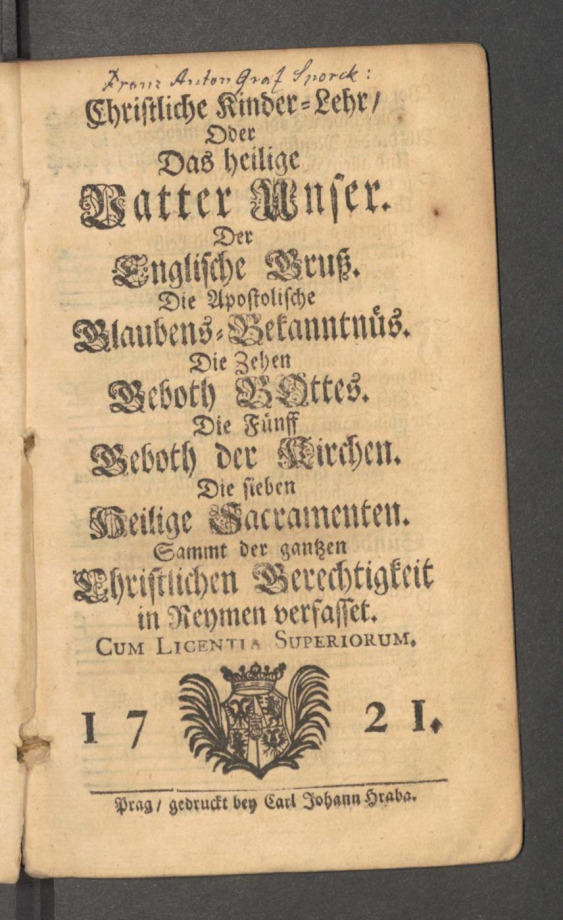 Franz Anton Graf Sporck:
Christliche Kinder=Lehr/
Oder
Das heilige
Vatter Unser.
Der
Englische Gruß.
Die Apostolische
Glaubens=Bekanntnüs.
Die Zehen
Geboth GOttes.
Die Fünff
Geboth der Kirchen.
Die sieben
Heilige Sacramenten.
Sammt der gantzen
Christlichen Gerechtigkeit
in Reymen verfasset.
CUM LICENTIA SUPERIORUM.
17 21.
Prag/ gedruckt bey Carl Johann Hraba.